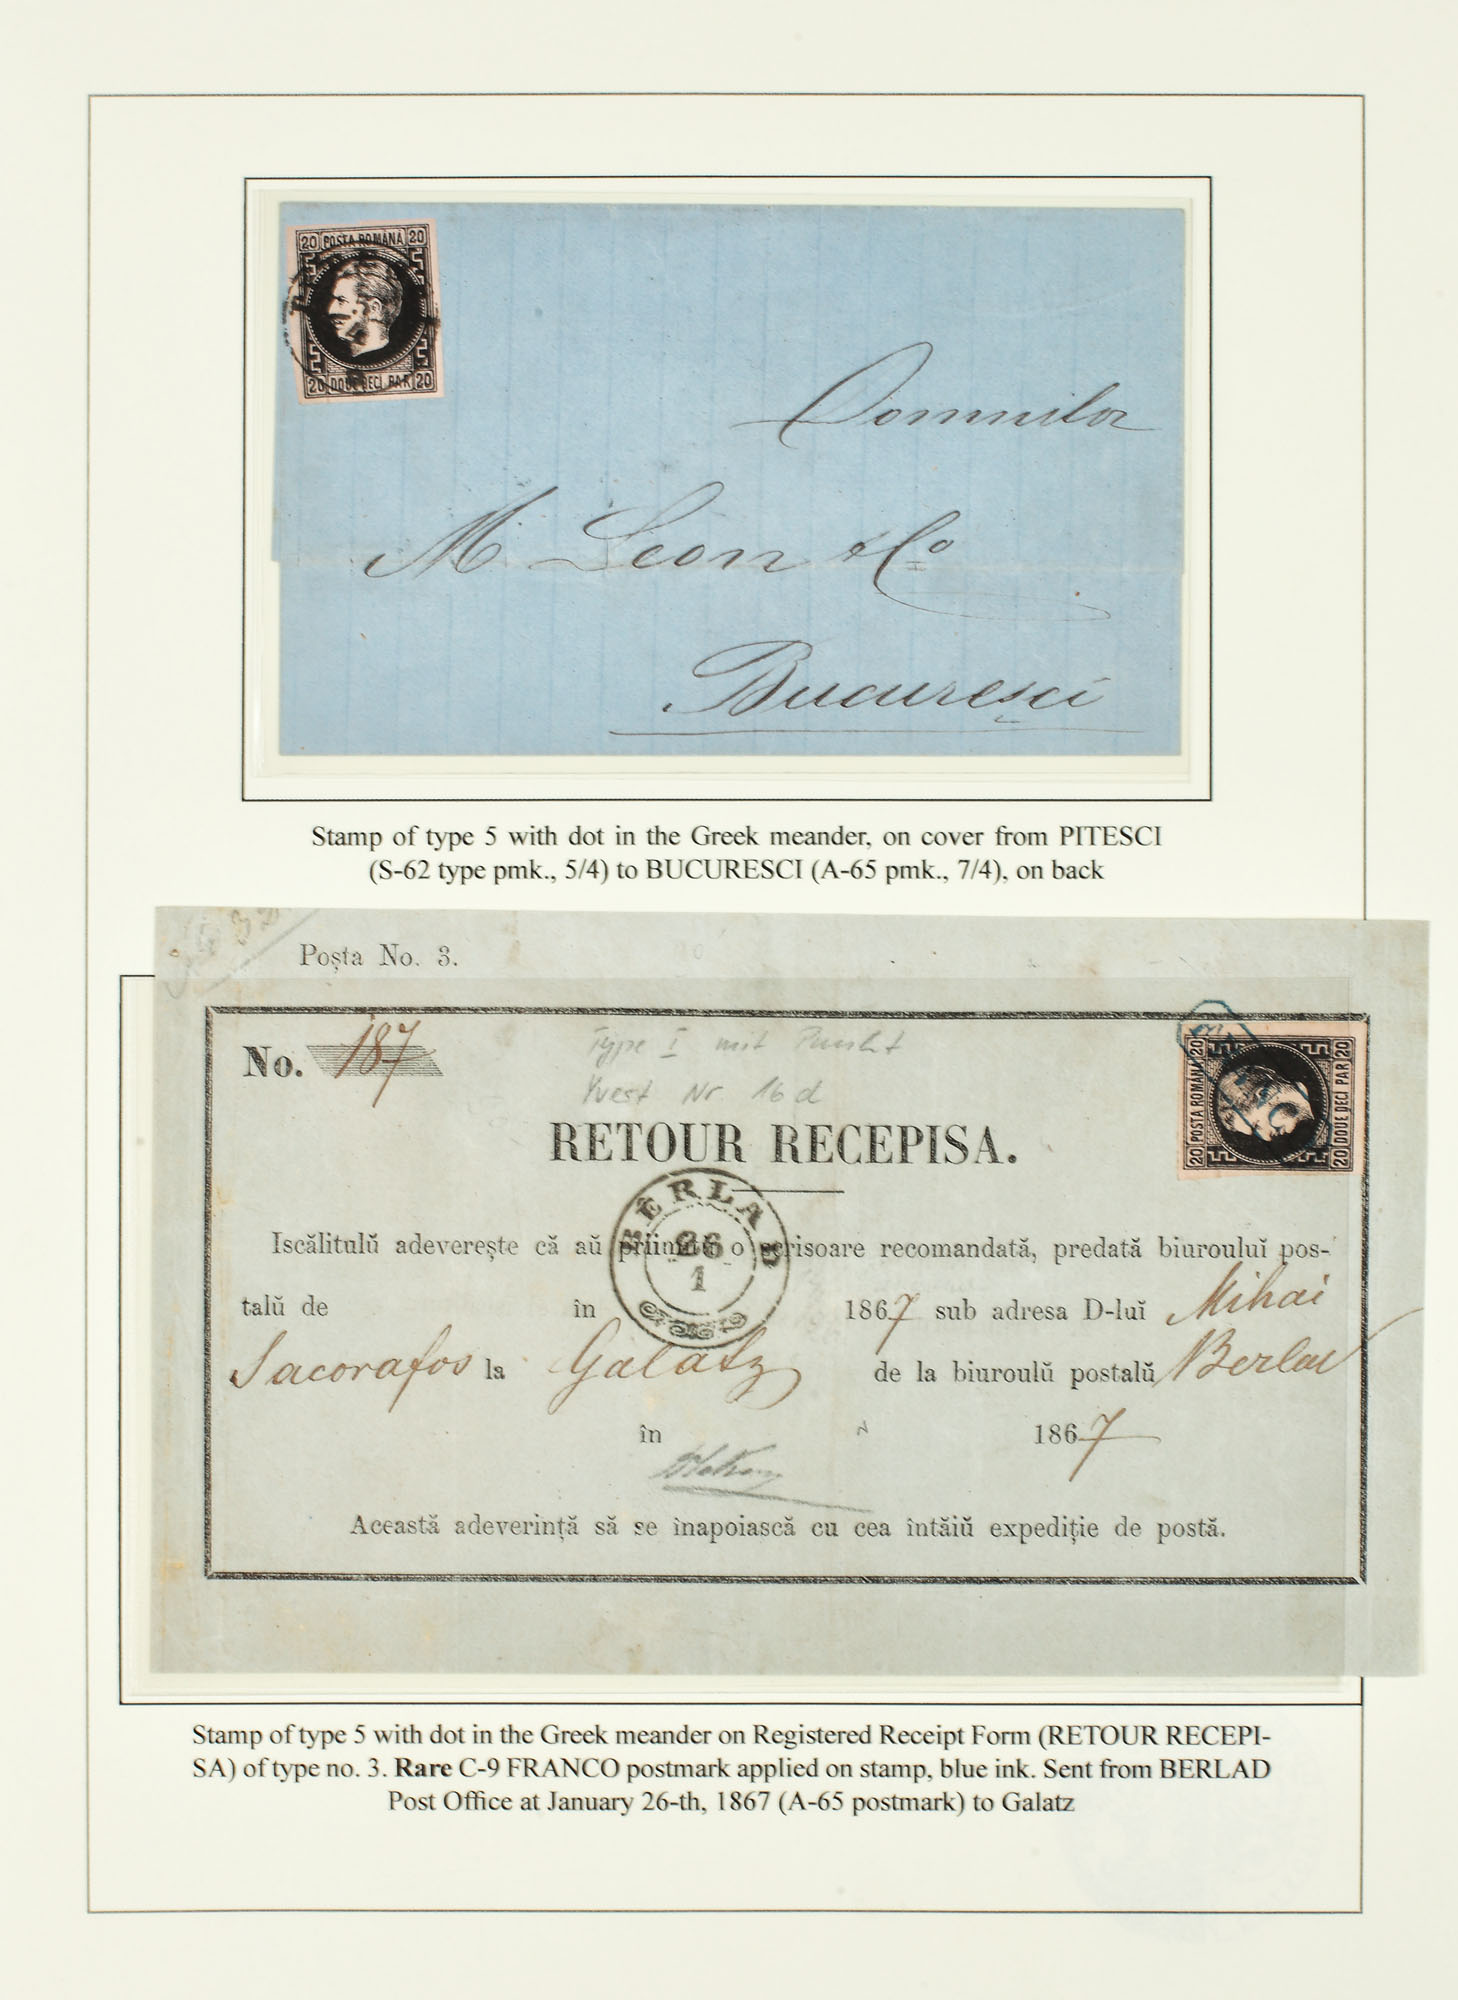 20 POSTA ROMÂNA 20
20 DOUE DECI PAR 20
Domnilor
M Leon & Co
Bucuresci
Stamp of type 5 with dot in the Greek meander, on cover from PITESCI
(S-62 type pmk., 5/4) to BUCURESCI (A-65 pmk., 7/4), on back
Poșta No. 3.
No. 187
Type I mit Punkt
Yvert Nr 16 d
20 POSTA ROMÂNA 20
20 DOUE DECI PAR 20
RETOUR RECEPISA.
BĔRLAD
26
1
Iscălitulŭ adeverește că aŭ priimitŭ o scrisoare recomandată, predată biuroului pos-
talŭ de în 1867 sub adresa D-luĭ Mihai
Sacorafos la Galatz de la biuroulŭ postalŭ Berlad
în 1867
Această adeverință să se înapoiască cu cea întăiŭ expediție de postă.
Stamp of type 5 with dot in the Greek meander on Registered Receipt Form (RETOUR RECEPI-
SA) of type no. 3. Rare C-9 FRANCO postmark applied on stamp, blue ink. Sent from BERLAD
Post Office at January 26-th, 1867 (A-65 postmark) to Galatz